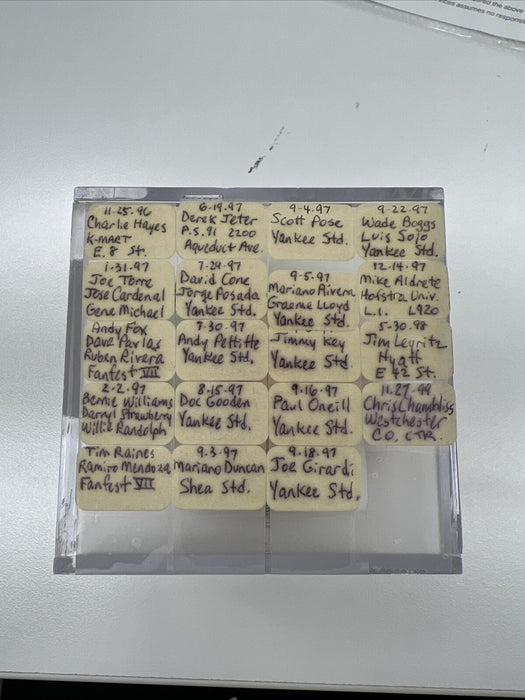 11-25-96
Charlie Hayes
K-MART
E. 8 St.
1-31-97
Joe Torre
Jose Cardenal
Gene Michael
Andy Fox
Dave Pavlas
Ruben Rivera
Fanfest VII
2-2-97
Bernie Williams
Darryl Strawberry
Willie Randolph
Tim Raines
Ramiro Mendoza
Fanfest VII
6-19-97
Derek Jeter
P.S. 91 2200
Aqueduct Ave.
7-24-97
David Cone
Jorge Posada
Yankee Std.
7-30-97
Andy Pettitte
Yankee Std.
8-15-97
Doc Gooden
Yankee Std.
9-3-97
Mariano Duncan
Shea Std.
9-4-97
Scott Pose
Yankee Std.
9-5-97
Mariano Rivera
Graeme Lloyd
Yankee Std.
Jimmy Key
Yankee Std.
9-16-97
Paul Oneill
Yankee Std.
9-18-97
Joe Girardi
Yankee Std.
9-22-97
Wade Boggs
Luis Sojo
Yankee Std.
12-14-97
Mike Aldrete
Hofstra Univ.
L.I. L920
5-30-98
Jim Leyritz
Hyatt
E 42 St.
11-27-99
Chris Chambliss
Westchester
CO. CTR.
the above
assumes no respons